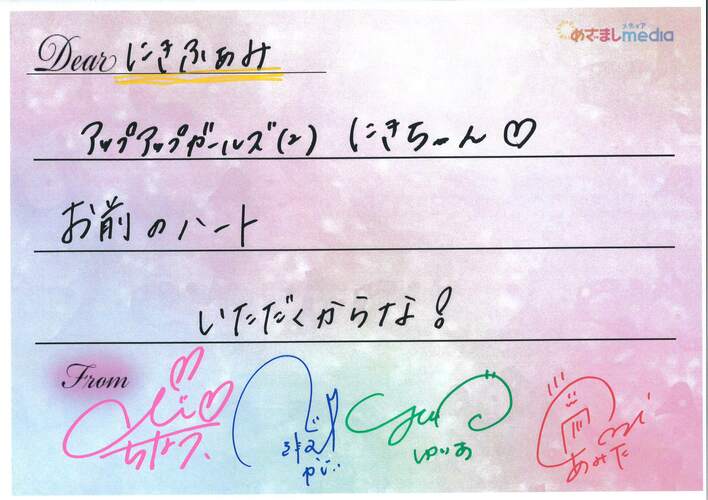 めざましmedia
メディア
Dear にきふぁみ
アップアップガールズ(2) にきちゃん♡
お前のハート
いただくからな!
From
ちなつ
ゆいあ
あみた